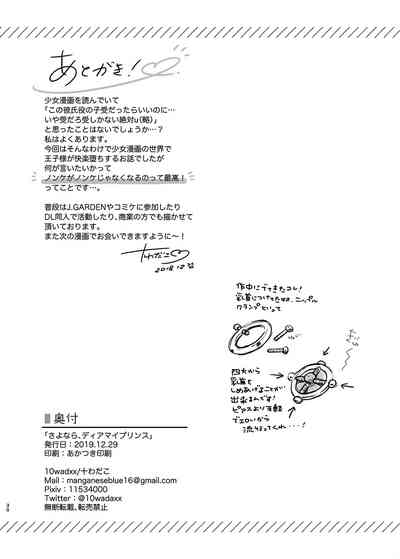 あとがき!
少女漫画を読んでいて
「この彼氏役の子受だったらいいのに…
いや受だろ受しかない絶対u(略)」
と思ったことはないでしょうか…?
私はよくあります。
今回はそんなわけで少女漫画の世界で
王子様が快楽堕ちするお話でしたが
何が言いたいかって
ノンケがノンケじゃなくなるのって最高!
ってことです…。
普段はJ.GARDENやコミケに参加したり
DL同人で活動したり、商業の方でも描かせて
頂いております。
また次の漫画でお会いできますように〜!
十わだこ
2019.12
作中にでてきたコレ!
乳首につけてたやつ、ニップル
クランプといって
四方から
乳首を
しめあげることが
出来るんです!
ピアスより手軽
でエロいから
流行ってくれ…!
奥付
「さよなら、ディアマイプリンス」
発行日:2019.12.29
印刷:あかつき印刷
10wadxx/十わだこ
Mail:manganeseblue16@gmail.com
Pixiv:11534000
Twitter:@10wadaxx
無断転載、転売禁止